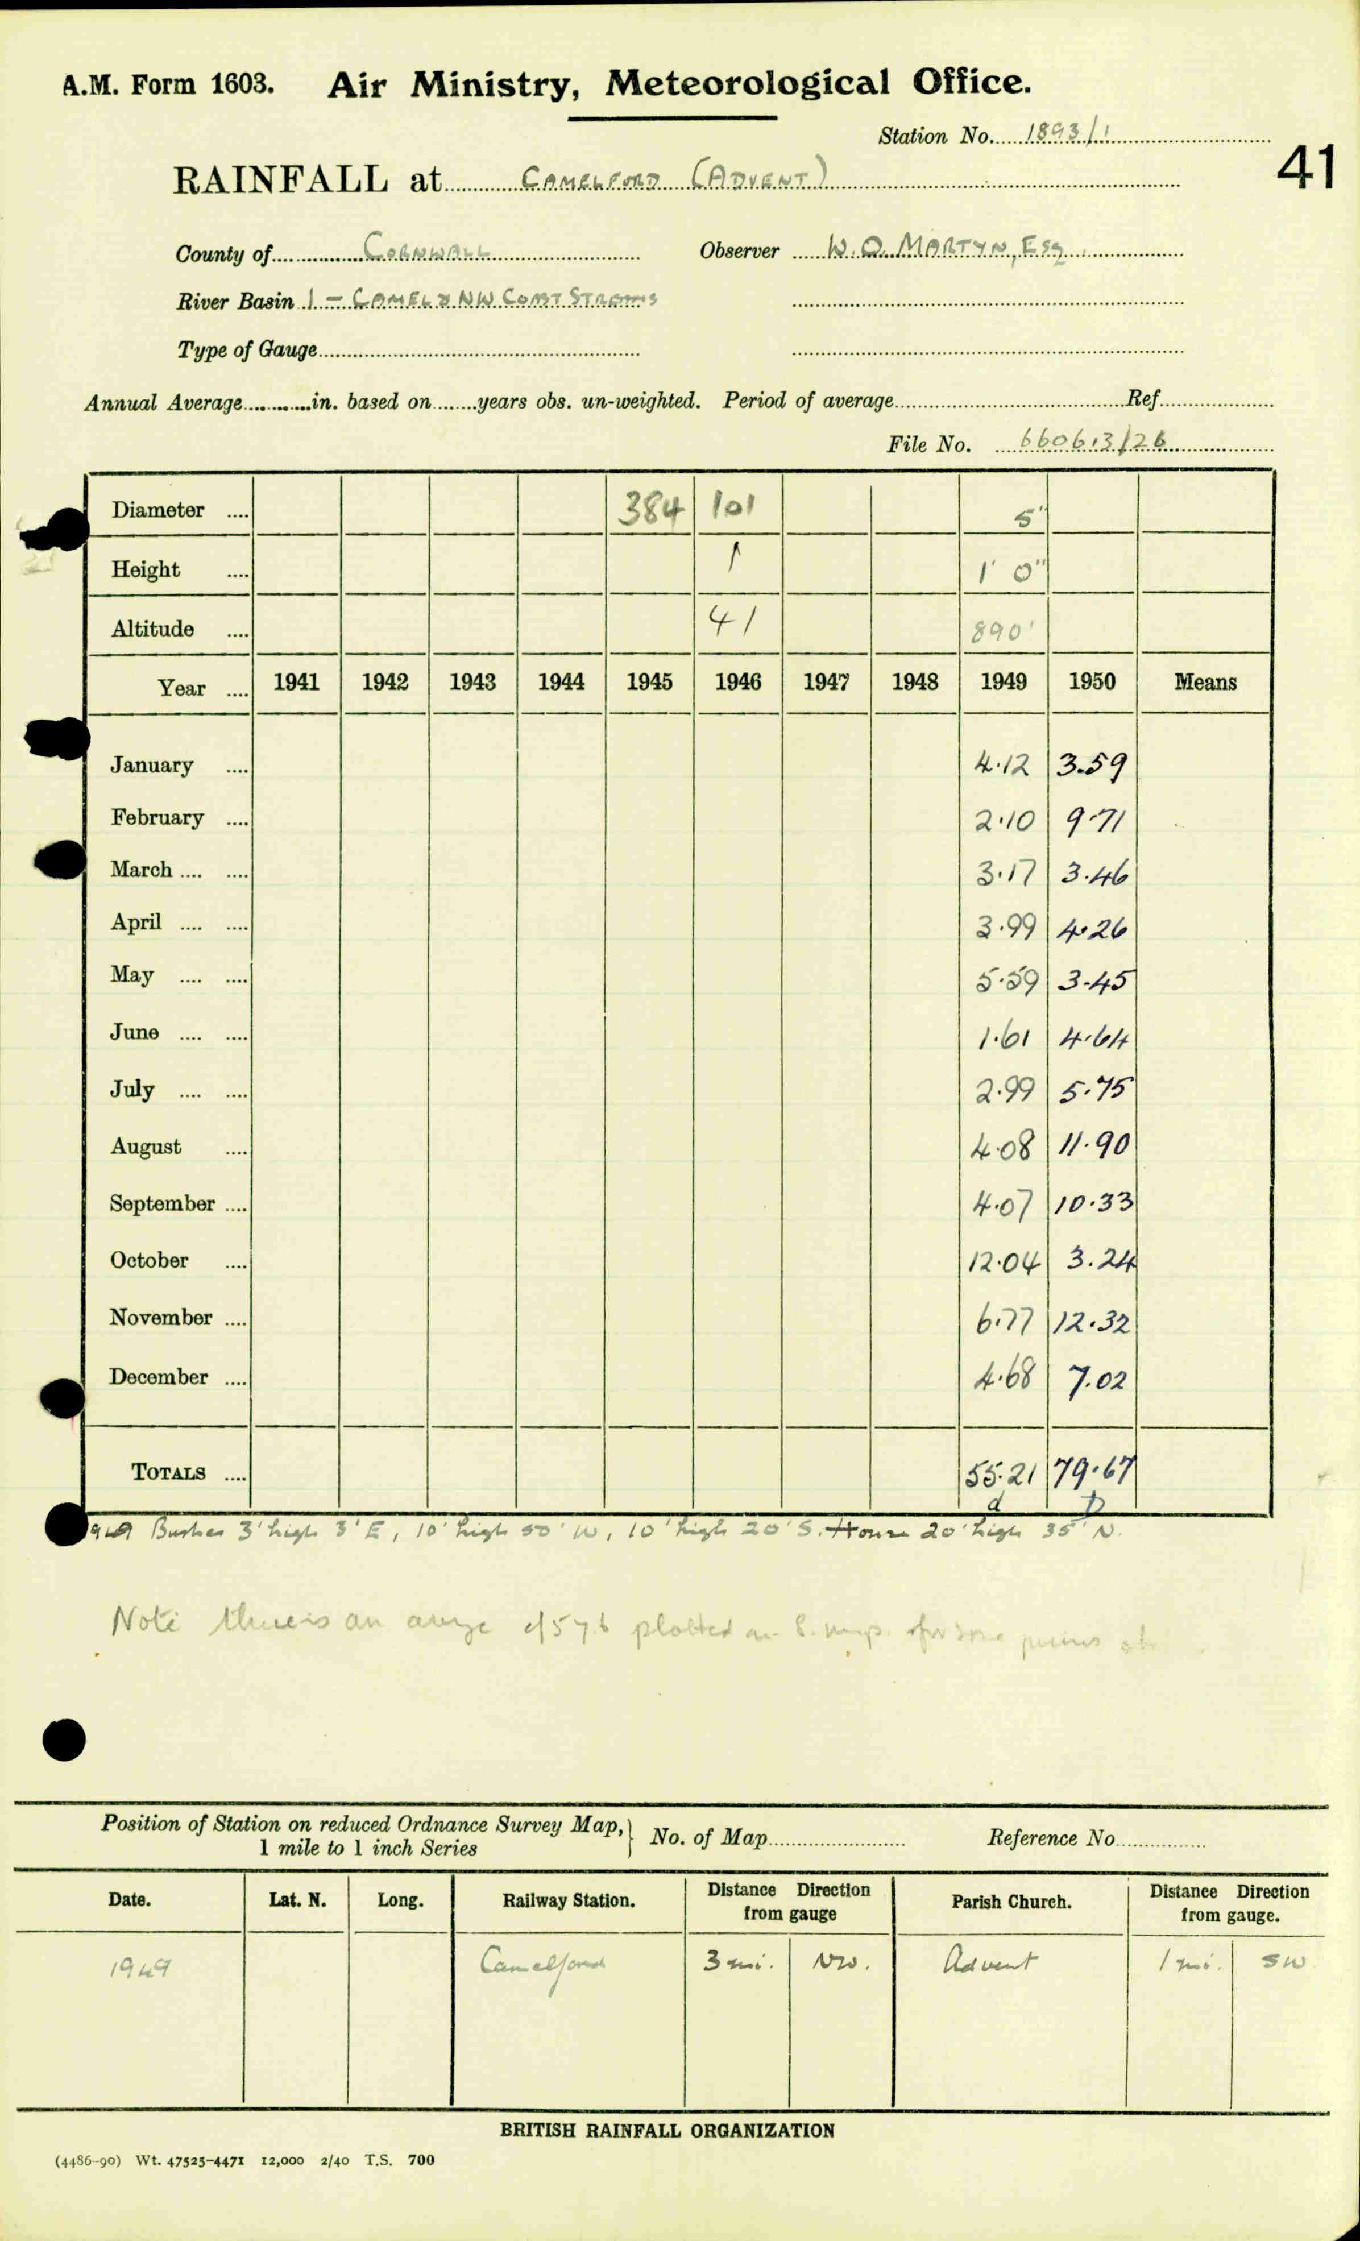 A.M. Form 1603. Air Ministry, Meteorological Office.
Station No. 1893/1
41
RAINFALL at CAMELFORD (ADVENT)
County of CORNWALL Observer W.O. MARTYN, Esq.
River Basin 1 - CAMEL & NW COAST STREAMS
Type of Gauge
Annual Average in. based on years obs. un-weighted. Period of average Ref
File No. 66063/26
Diameter .... 384 101 5"
Height .... 1 1' 0"
Altitude .... 41 890'
Year .... 1941 1942 1943 1944 1945 1946 1947 1948 1949 1950 Means
January .... 4.12 3.59
February .... 2.10 9.71
March .... .... 3.17 3.46
April .... .... 3.99 4.26
May .... .... 5.59 3.45
June .... .... 1.61 4.64
July .... .... 2.99 5.75
August .... 4.08 11.90
September .... 4.07 10.33
October .... 12.04 3.24
November .... 6.77 12.32
December .... 4.68 7.02
TOTALS .... 55.21 79.67
d D
949 Bushes 3' high 3' E, 10' high 50' W, 10' high 20' S. House 20' high 35' N.
Note there is an avge of 57.6 plotted on maps for some
Position of Station on reduced Ordnance Survey Map,} No. of Map Reference No
1 mile to 1 inch Series
Date. Lat. N. Long. Railway Station. Distance Direction from gauge Parish Church. Distance Direction from gauge.
1949 Camelford 3 mi. NW. Advent 1 mi. SW
BRITISH RAINFALL ORGANIZATION
(4486-90) Wt. 47525-4471 12,000 2/40 T.S. 700